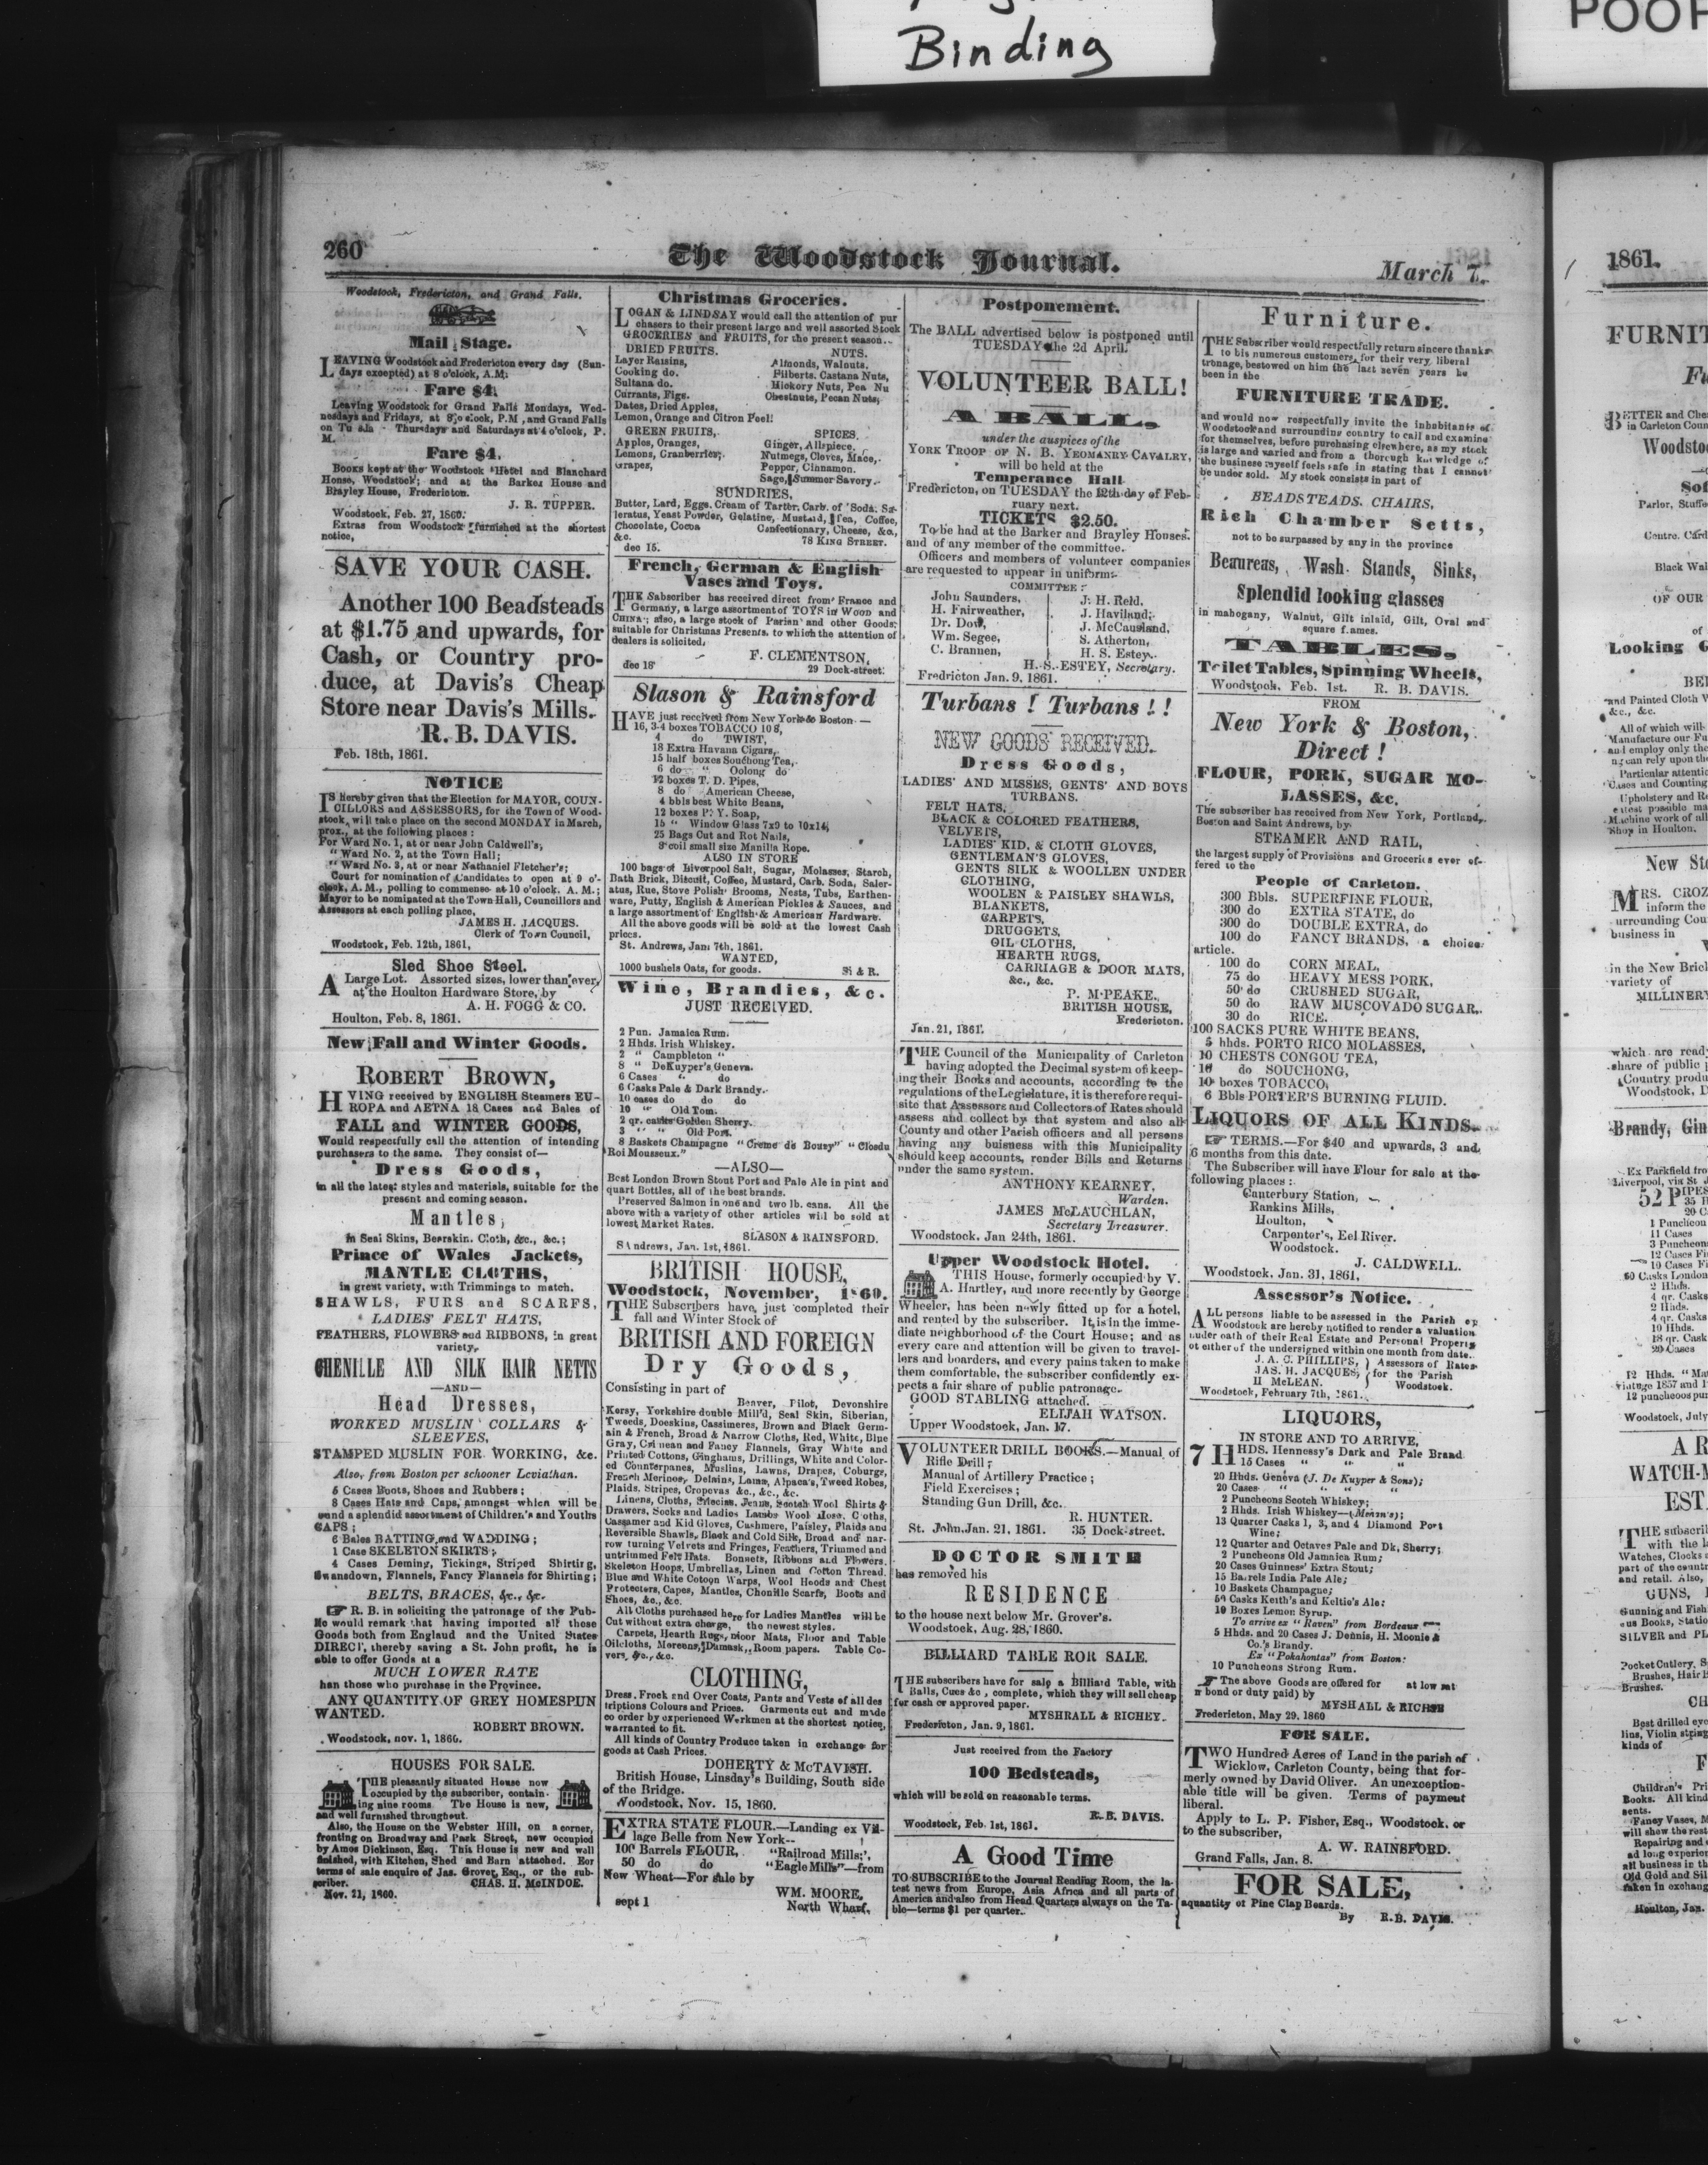 Binding
POOR
260
The Woodstock Journal.
March 7.
Woodstock, Fredericton, and Grand Falls.
Mail Stage.
LEAVING Woodstock and Fredericton every day (Sun-
days excepted) at 8 o'clock, A.M.
Fare $4.
Leaving Woodstock for Grand Falls Mondays, Wed-
nesdays and Fridays, at 8 o'clock, P.M, and Grand Falls
on Thursdays and Saturdays at 4 o'clock, P.
M.
Fare $4.
Books kept at the Woodstock Hotel and Blanchard
House, Woodstock; and at the Barker House and
Brayley House, Fredericton.
J. R. TUPPER.
Woodstock, Feb. 27, 1860.
Extras from Woodstock furnished at the shortest
notice,
SAVE YOUR CASH.
Another 100 Beadsteads
at $1.75 and upwards, for
Cash, or Country pro-
duce, at Davis's Cheap
Store near Davis's Mills.
R. B. DAVIS.
Feb. 18th, 1861.
NOTICE
IS hereby given that the Election for MAYOR, COUN-
CILLORS and ASSESSORS, for the Town of Wood-
stook, will take place on the second MONDAY in March,
prox., at the following places :
For Ward No. 1, at or near John Caldwell's;
" Ward No. 2, at the Town Hall;
" Ward No. 3, at or near Nathaniel Fletcher's;
Court for nomination of Candidates to open at 9 o'-
clook, A. M., polling to commence at 10 o'clock. A. M.;
Mayor to be nominated at the Town Hall, Councillors and
Assessors at each polling place,
JAMES H. JACQUES.
Clerk of Town Council,
Woodstock, Feb. 12th, 1861,
Sled Shoe Steel.
A Large Lot. Assorted sizes, lower than ever,
at the Houlton Hardware Store, by
A. H. FOGG & CO.
Houlton, Feb. 8, 1861.
New Fall and Winter Goods.
ROBERT BROWN,
HVING received by ENGLISH Steamers EU-
ROPA and AETNA 18 Cases and Bales of
FALL and WINTER GOODS,
Would respectfully call the attention of intending
purchasers to the same. They consist of—
Dress Goods,
in all the latest styles and materials, suitable for the
present and coming season.
Mantles,
in Seal Skins, Bearskin. Cloth, &c., &c.;
Prince of Wales Jackets,
MANTLE CLOTHS,
in great variety, with Trimmings to match.
SHAWLS, FURS and SCARFS,
LADIES' FELT HATS,
FEATHERS, FLOWERS and RIBBONS, in great
variety,
CHENILLE AND SILK HAIR NETTS
—AND—
Head Dresses,
WORKED MUSLIN COLLARS &
SLEEVES,
STAMPED MUSLIN FOR WORKING, &c.
Also, from Boston per schooner Leviathan.
5 Cases Boots, Shoes and Rubbers;
8 Cases Hats and Caps, amongst which will be
found a splendid assortment of Children's and Youths
CAPS;
6 Bales BATTING and WADDING;
1 Case SKELETON SKIRTS;
4 Cases Deming, Tickings, Striped Shirting,
Swansdown, Flannels, Fancy Flannels for Shirting;
BELTS, BRACES, &c., &c.
R. B. in soliciting the patronage of the Pub-
lic would remark that having imported all these
Goods both from England and the United States
DIRECT, thereby saving a St. John profit, he is
able to offer Goods at a
MUCH LOWER RATE
han those who purchase in the Province.
ANY QUANTITY OF GREY HOMESPUN
WANTED.
ROBERT BROWN.
Woodstock, nov. 1, 1860.
HOUSES FOR SALE.
THE pleasantly situated House now
occupied by the subscriber, contain-
ing nine rooms The House is new,
and well furnished throughout.
Also, the House on the Webster Hill, on a corner,
fronting on Broadway and Park Street, now occupied
by Amos Dickinson, Esq. This House is new and well
finished, with Kitchen, Shed and Barn attached. For
terms of sale enquire of Jas. Grover, Esq., or the sub-
scriber. CHAS. H. McINDOE.
Nov. 21, 1860.
Christmas Groceries.
LOGAN & LINDSAY would call the attention of pur
chasers to their present large and well assorted Stock
GROCERIES and FRUITS, for the present season..
DRIED FRUITS. NUTS.
Layer Raisins, Almonds, Walnuts.
Cooking do. Filberts. Castana Nuts,
Sultana do. Hickory Nuts, Pea Nu
Currants, Figs. Chestnuts, Pecan Nuts,
Dates, Dried Apples,
Lemon, Orange and Citron Peel!
GREEN FRUITS, SPICES.
Apples, Oranges, Ginger, Allspiece,
Lemons, Cranberries; Nutmegs, Cloves, Mace,
Grapes, Pepper, Cinnamon.
Sage, Summer Savory.
SUNDRIES,
Butter, Lard, Eggs. Cream of Tartar, Carb. of Soda. Sa-
leratus, Yeast Powder, Gelatine, Mustard, Tea, Coffee,
Chocolate, Cocoa Confectionary, Cheese, &c.,
&c. 78 KING STREET.
dec 15.
French, German & English
Vases and Toys.
THE Sabscriber has received direct from France and
Germany, a large assortment of TOYS in WOOD and
CHINA; also, a large stock of Parian and other Goods,
suitable for Christmas Presents. to which the attention of
dealers is solicited,
F. CLEMENTSON,
dec 18 29 Dock-street.
Slason & Rainsford
HAVE just received from New York & Boston —
16, 3-4 boxes TOBACCO 10 8,
4 do TWIST,
18 Extra Havana Cigars,
15 half boxes Souchong Tea,
6 do " Oolong do
12 boxes T. D. Pipes,
8 do American Cheese,
4 bbls best White Beans,
12 boxes P. Y. Soap,
15 " Window Glass 7x9 to 10x14,
25 Bags Cut and Rot Nails,
8 coil small size Manilla Rope.
ALSO IN STORE
100 bags of Liverpool Salt, Sugar, Molasses, Starch,
Bath Brick, Biscuit, Coffee, Mustard, Carb. Soda, Saler-
atus, Rue, Stove Polish Brooms, Nests, Tubs, Earthen-
ware, Putty, English & American Pickles & Sauces, and
a large assortment of English & American Hardware.
All the above goods will be sold at the lowest Cash
prices.
St. Andrews, Jan. 7th, 1861.
WANTED,
1000 bushels Oats, for goods. S. & R.
Wine, Brandies, &c.
JUST RECEIVED.
2 Pun. Jamaica Rum.
2 Hhds. Irish Whiskey.
2 " Campbleton "
8 " DeKuyper's Geneva.
6 Cases " do
6 Casks Pale & Dark Brandy.
10 cases do do do
10 " Old Tom.
2 qr. casks Golden Sherry.
3 " " Old Port.
8 Baskets Champagne "Creme de Bouzy" "Closdu
Roi Mousseux."
—ALSO—
Best London Brown Stout Port and Pale Ale in pint and
quart Bottles, all of the best brands.
Preserved Salmon in one and two lb. cans. All the
above with a variety of other articles will be sold at
lowest Market Rates.
SLASON & RAINSFORD.
St Andrews, Jan. 1st, 1861.
BRITISH HOUSE,
Woodstock, November, 1860.
THE Subscribers have just completed their
fall and Winter Stock of
BRITISH AND FOREIGN
Dry Goods,
Consisting in part of
Beaver, Pilot, Devonshire
Kersy, Yorkshire double Mill'd, Seal Skin, Siberian,
Tweeds, Doeskins, Cassimeres, Brown and Black Germ-
ain & French, Broad & Narrow Cloths, Red, White, Blue
Gray, Crimean and Fancy Flannels, Gray White and
Printed Cottons, Ginghams, Drillings, White and Color-
ed Counterpanes, Muslins, Lawns, Drapes, Coburgs,
French Merinos, Delains, Lama, Alpaca's, Tweed Robes,
Plaids, Stripes, Cropovas &c., &c., &c.
Linens, Cloths, Silecias, Jeans, Scotch Wool Shirts &
Drawers, Socks and Ladies Lambs Wool Hose. Cloths,
Cassamer and Kid Gloves, Cashmere, Paisley, Plaids and
Reversible Shawls, Black and Cold Silk, Broad and nar-
row turning Velvets and Fringes, Feathers, Trimmed and
untrimmed Felt Hats. Bonnets, Ribbons and Flowers.
Skeleton Hoops, Umbrellas, Linen and Cotton Thread.
Blue and White Cotoon Warps, Wool Hoods and Chest
Protecters, Capes, Mantles, Chenille Scarfs, Boots and
Shoes, &c., &c.
All Cloths purchased here for Ladies Mantles will be
Cut without extra charge, the newest styles.
Carpets, Hearth Rugs, Door Mats, Floor and Table
Oilcloths, Moreens, Damask, Room papers. Table Co-
vers, &c., &c.
CLOTHING,
Dress, Frock and Over Coats, Pants and Vests of all des
triptions Colours and Prices. Garments cut and made
to order by experienced Workmen at the shortest notice,
warranted to fit.
All kinds of Country Produce taken in exchange for
goods at Cash Prices.
DOHERTY & McTAVISH.
British House, Linsday's Building, South side
of the Bridge.
Woodstock, Nov. 15, 1860.
EXTRA STATE FLOUR.—Landing ex Vil-
lage Belle from New York--
100 Barrels FLOUR, "Railroad Mills;',
50 do do "Eagle Mills"—from
New Wheat—For sale by
WM. MOORE,
sept 1 North Wharf,
Postponement.
The BALL advertised below is postponed until
TUESDAY the 2d April.
VOLUNTEER BALL!
A BALL,
under the auspices of the
YORK TROOP OF N. B. YEOMANRY CAVALRY,
will be held at the
Temperance Hall
Fredericton, on TUESDAY the 12th day of Feb-
ruary next.
TICKETS $2.50.
To be had at the Barker and Brayley Houses.
and of any member of the committee.
Officers and members of volunteer companies
are requested to appear in uniform.
COMMITTEE:
John Saunders, J. H. Reid,
H. Fairweather, J. Haviland,
Dr. Dow, J. McCausland,
Wm. Segee, S. Atherton,
C. Brannen, H. S. Estey.
H. S. ESTEY, Secretary.
Fredricton Jan. 9, 1861.
Turbans ! Turbans ! !
NEW GOODS RECEIVED.
Dress Goods,
LADIES' AND MISSES, GENTS' AND BOYS
TURBANS.
FELT HATS,
BLACK & COLORED FEATHERS,
VELVETS,
LADIES' KID, & CLOTH GLOVES,
GENTLEMAN'S GLOVES,
GENTS SILK & WOOLLEN UNDER
CLOTHING,
WOOLEN & PAISLEY SHAWLS,
BLANKETS,
CARPETS,
DRUGGETS,
OIL CLOTHS,
HEARTH RUGS,
CARRIAGE & DOOR MATS,
&c., &c.
P. McPEAKE,
BRITISH HOUSE,
Fredericton.
Jan. 21, 1861.
THE Council of the Municipality of Carleton
having adopted the Decimal system of keep-
ing their Books and accounts, according to the
regulations of the Legislature, it is therefore requi-
site that Assessors and Collectors of Rates should
assess and collect by that system and also all
County and other Parish officers and all persons
having any buisness with this Municipality
should keep accounts, render Bills and Returns
under the same system.
ANTHONY KEARNEY,
Warden.
JAMES McLAUCHLAN,
Secretary Treasurer.
Woodstock, Jan 24th, 1861.
Upper Woodstock Hotel.
THIS House, formerly occupied by V.
A. Hartley, and more recently by George
Wheeler, has been newly fitted up for a hotel,
and rented by the subscriber. It is in the imme-
diate neighborhood of the Court House; and as
every care and attention will be given to travel-
lers and boarders, and every pains taken to make
them comfortable, the subscriber confidently ex-
pects a fair share of public patronage.
GOOD STABLING attached.
ELIJAH WATSON.
Upper Woodstock, Jan. 17.
VOLUNTEER DRILL BOOKS.—Manual of
Rifle Drill;
Manual of Artillery Practice;
Field Exercises;
Standing Gun Drill, &c.
R. HUNTER.
St. John. Jan. 21, 1861. 35 Dock-street.
DOCTOR SMITH
has removed his
RESIDENCE
to the house next below Mr. Grover's.
Woodstock, Aug. 28, 1860.
BILLIARD TABLE ROR SALE.
THE subscribers have for sale a Billiard Table, with
Balls, Cues &c, complete, which they will sell cheap
for cash or approved paper.
MYSHRALL & RICHEY.
Fredericton, Jan. 9, 1861.
Just received from the Factory
100 Bedsteads,
which will be sold on reasonable terms.
R. B. DAVIS.
Woodstock, Feb. 1st, 1861.
A Good Time
TO SUBSCRIBE to the Journal Reading Room, the la-
test news from Europe, Asia Africa and all parts of
America and also from Head Quarters always on the Ta-
ble—terms $1 per quarter.
Furniture.
THE Subscriber would respectfully return sincere thanks
to his numerous customers, for their very liberal
tronage, bestowed on him the last seven years he
been in the
FURNITURE TRADE.
and would now respectfully invite the inhabitants of
Woodstock and surrounding country to call and examine
for themselves, before purchasing elsewhere, as my stock
is large and varied and from a thorough knowledge of
the business myself feels safe in stating that I cannot
be under sold. My stock consists in part of
BEADSTEADS. CHAIRS,
Rich Chamber Setts,
not to be surpassed by any in the province
Beaureas, Wash Stands, Sinks,
Splendid looking glasses
in mahogany, Walnut, Gilt inlaid, Gilt, Oval and
square frames.
TABLES.
Toilet Tables, Spinning Wheels,
Woodstock, Feb. 1st. R. B. DAVIS.
FROM
New York & Boston,
Direct !
FLOUR, PORK, SUGAR MO-
LASSES, &c,
The subscriber has received from New York, Portland,
Boston and Saint Andrews, by
STEAMER AND RAIL,
the largest supply of Provisions and Groceries ever of-
fered to the
People of Carleton.
300 Bbls. SUPERFINE FLOUR,
300 do EXTRA STATE, do
300 do DOUBLE EXTRA, do
100 do FANCY BRANDS, a choice
article.
100 do CORN MEAL,
75 do HEAVY MESS PORK,
50 do CRUSHED SUGAR,
50 do RAW MUSCOVADO SUGAR.
30 do RICE.
100 SACKS PURE WHITE BEANS,
5 hhds. PORTO RICO MOLASSES,
10 CHESTS CONGOU TEA,
10 do SOUCHONG,
10 boxes TOBACCO,
6 Bbls PORTER'S BURNING FLUID.
LIQUORS OF ALL KINDS.
TERMS.—For $40 and upwards, 3 and
6 months from this date.
The Subscriber will have Flour for sale at the
following places:
Canterbury Station,
Rankins Mills,
Houlton,
Carpenter's, Eel River.
Woodstock.
J. CALDWELL.
Woodstock, Jan. 31, 1861,
Assessor's Notice.
ALL persons liable to be assessed in the Parish of
Woodstock are hereby notified to render a valuation
under oath of their Real Estate and Personal Property
ot either of the undersigned within one month from date.
J. A. C. PHILLIPS, Assessors of Rates
JAS. H. JACQUES, for the Parish
H McLEAN. Woodstock.
Woodstock, February 7th, 1861.
LIQUORS,
IN STORE AND TO ARRIVE,
7 HHDS. Hennessy's Dark and Pale Brand
15 Cases " " "
20 Hhds. Geneva (J. De Kuyper & Sons);
20 Cases " " " "
2 Puncheons Scotch Whiskey;
2 Hhds. Irish Whiskey—
13 Quarter Casks 1, 3, and 4 Diamond Port
Wine;
12 Quarter and Octaves Pale and Dk, Sherry;
2 Puncheons Old Jamaica Rum;
20 Cases Guinness' Extra Stout;
15 Barrels India Pale Ale;
10 Baskets Champagne;
50 Casks Keith's and Keltie's Ale;
10 Boxes Lemon Syrup.
To arrive ex "Raven" from Bordeaux
5 Hhds. and 20 Cases J. Dennis, H. Moonie &
Co.'s Brandy.
Ex "Pokahontas" from Boston:
10 Puncheons Strong Rum.
The above Goods are offered for at low
bond or duty paid) by
MYSHALL & RICHEY
Fredericton, May 29. 1860
FOR SALE.
TWO Hundred Acres of Land in the parish of
Wicklow, Carleton County, being that for-
merly owned by David Oliver. An unexception-
able title will be given. Terms of payment
liberal.
Apply to L. P. Fisher, Esq., Woodstock. or
to the subscriber,
A. W. RAINSFORD.
Grand Falls, Jan. 8.
FOR SALE,
aquantity of Pine Clap Boards.
By R.B. DAVIS.
1861.
FURNIT
BETTER and
in Carleton
Woodsto
Parlor, Stuffe
Black Wal
OF OUR
Looking G
and Painted Cloth
&c., &c.
All of which will
Manufacture our Fu
and employ only the
Particular attentio
Cases and Counting
Upholstery and
Machine work of all
Shop in Houlton.
New
MRS. CROZ
inform the
business in
in the New Bric
variety of
MILLINERY
which are read
share of public
Country produ
Woodstock,
Brandy, Gin
Ex Parkfield fro
Liverpool, via St J
52 PIPES
1 Puncheon
11 Cases
3 Puncheons
12 Cases
10 Cases
60 Casks London
2 Hhds.
4 qr. Casks
2 Hhds.
4 qr. Casks
10 Hhds.
18 qr. Cask
20 Cases
12 Hhds.
vintage 1857 and
12 puncheons
Woodstock, July
WATCH-M
EST
THE subscrib
with the
Watches, Clocks
part of the countr
and retail. Also,
GUNS,
Gunning and Fish
SILVER and PL
Pocket Cutlery,
Brushes, Hair
Brushes.
Best drilled eye
lins, Violin string
kinds of
Children's
Books. All kind
sents.
Fancy Vases,
will show the
Repairing and
ad long experien
all business in th
Old Gold and Sil
taken in exchang
Houlton, Jan.